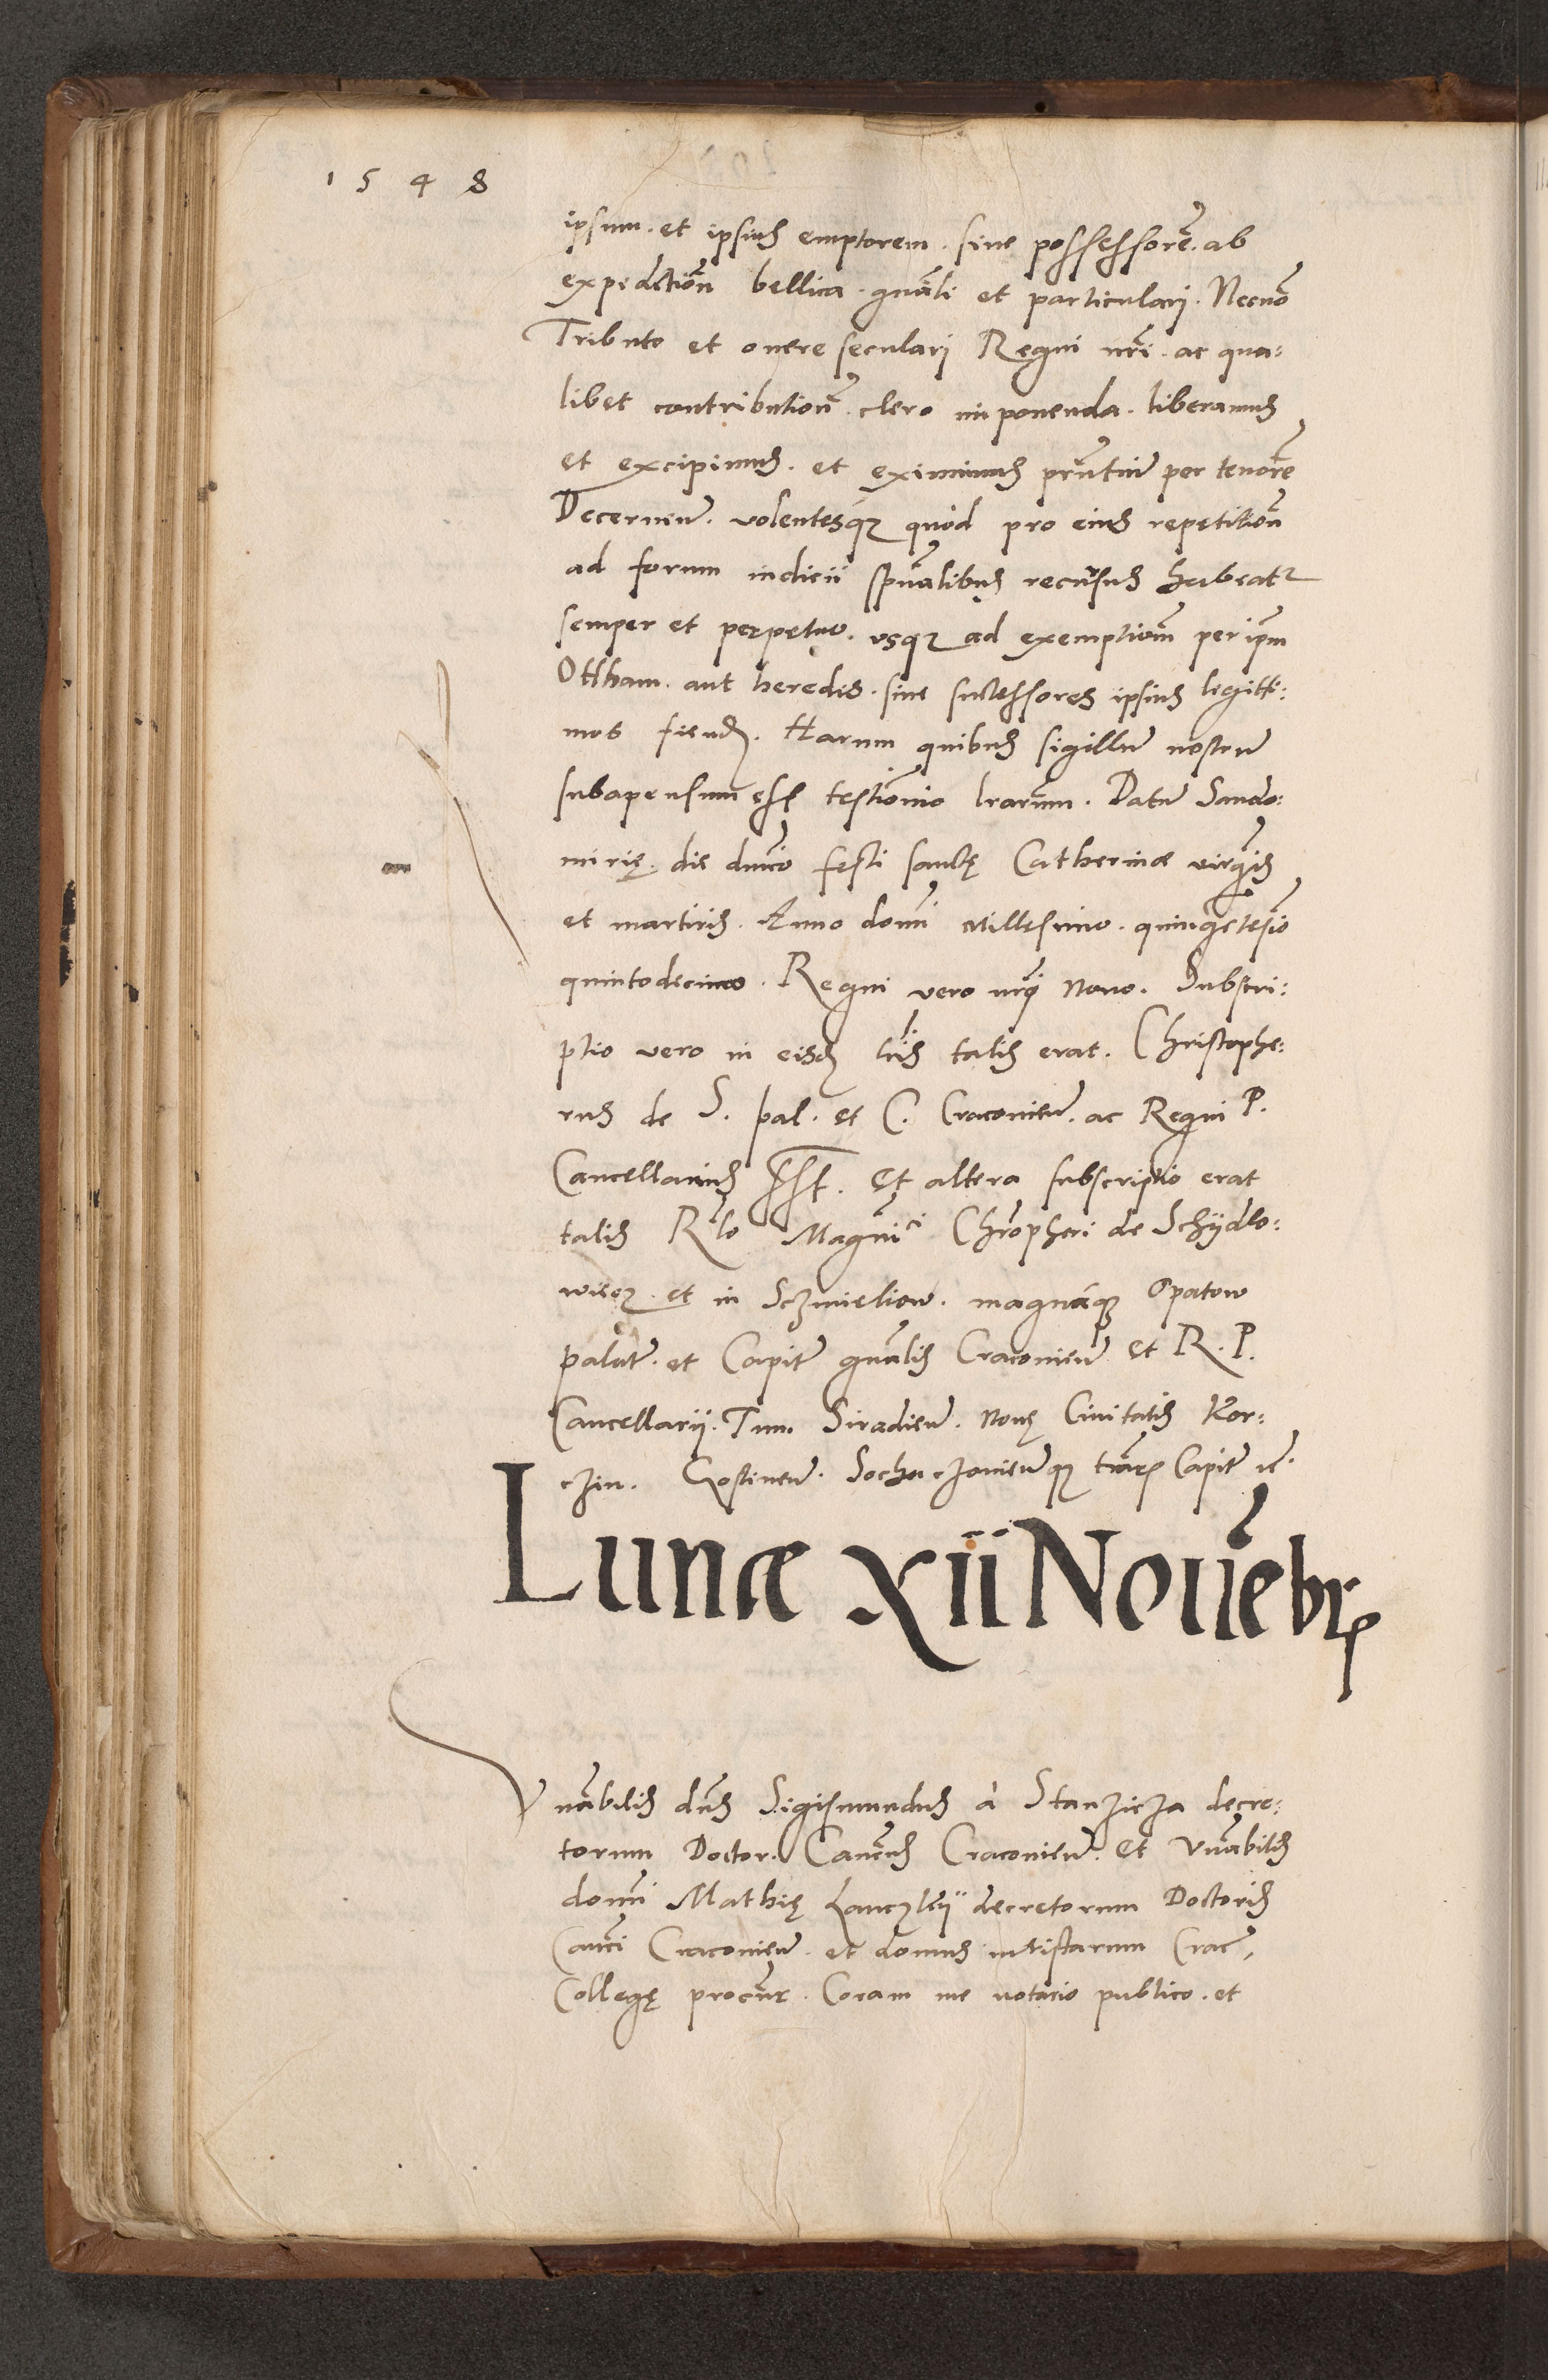 1548
ipsum. et ipsius emptorem. siue possessorē. ab
expeditiōn bellica. gnāli et particulari. Necnō
Tributo et onere seculari Regni nr̄i. ac qua:
libet contributiōn. clero imponenda. liberamus
et excipimus. et eximimus prn̄tiū per tenorē
Decernen̄. volentesq̨ quòd pro eius repetitiōn
ad forum iudicii spūalibus recursus habeatr
semper et perpetuo. vsq̨ ad exemptiōm per ipm̄
Ottham. aut heredes. siue successores ipsius legitti:
mos fiend. Harum quibus sigillū nostrū
subapensum est testiōnio lr̄arum. Datū Sando:
mirię. die dn̄ico festi sanctę Catherinæ virgīs
et martiris. Anno domī Millesimo. quingētesīo
quintodecimo. Regni vero nrī Nono. Subscri:
ptio vero in eisd lrīs talis erat. Christophe:
rus de S. pal. et C. Cracouieñ. ac Regni P.
Cancellarius sst. Et altera subscriptio erat
talis Rlo Magn̄ici Chrōpheri de Schÿdlo:
wiecz et in Sczmieliow. magnáq̨ Opatow
palatr̄. et Capitr̄ gnālis Cracouieñ et R. P.
Cancellarii. Tum. Siradieñ. Nouę Ciuitatis Kor:
czin. Gostineñ. Sochaczouieñq̨ tr̄ar̨ Capitr̄ rc̄.
Lunæ xii Nouēbr̨
Vnābilis dn̄s Sigismundus à Stanzicza decre:
torum Doctor. Canc̄us Cracouieñ. et Vnābilis
domī Mathię Lanczkii decretorum Doctoris
Canc̄i Cracouieñ. et domus iuristarum Crac̄,
Collegę procūr. Coram me notario publico. et